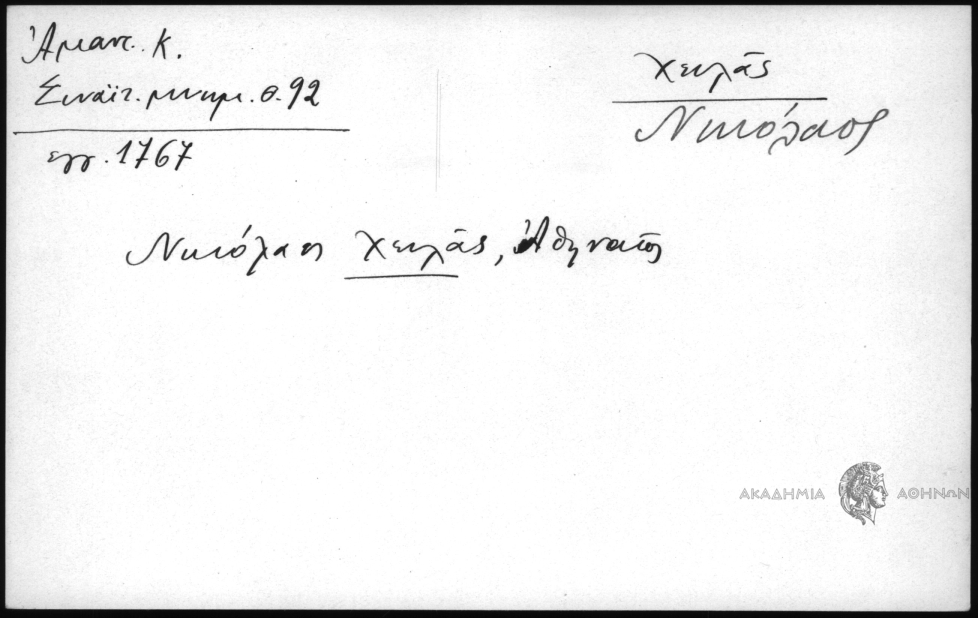 Ἀμαντ. Κ.
Σιναϊτ. μνημ. σ. 92
εγγ. 1767
Χειλᾶς
Νικόλαος
Νικόλαος Χειλᾶς, Ἀθηναῖος
ΑΚΑΔΗΜΙΑ ΑΘΗΝΩΝ